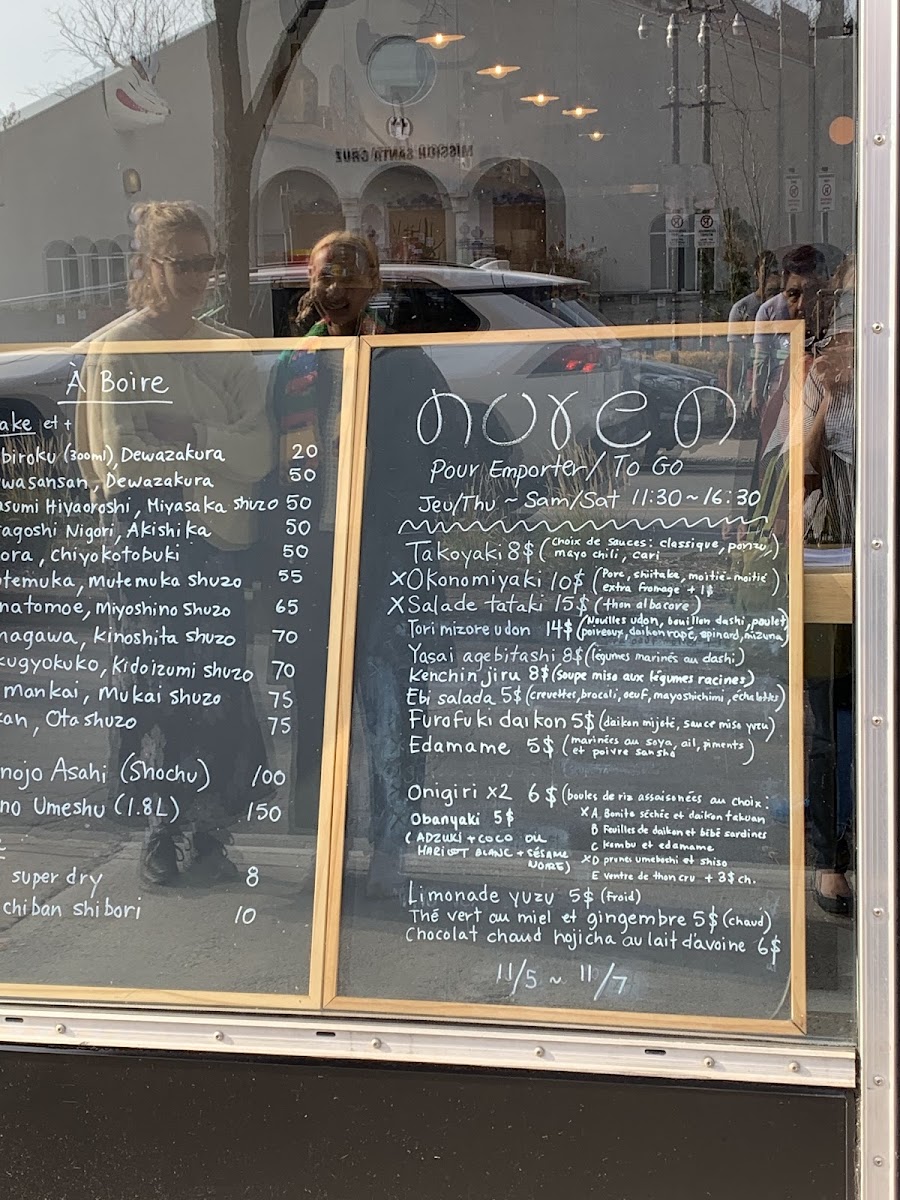 MISSION SANTA CRUZ
À Boire
ake et +
biroku (300ml), Dewazakura 20
wasansan, Dewazakura 50
asumi Hiyaoroshi, Miyasaka shuzo 50
agoshi Nigori, Akishika 50
ora, Chiyokotobuki 50
temuka, Mutemuka Shuzo 55
natomoe, Miyoshino Shuzo 65
nagawa, kinoshita shuzo 70
kugyokuko, Kidoizumi shuzo 70
mankai, Mukai shuzo 75
kan, Ota shuzo 75
nojo Asahi (Shochu) 100
no Umeshu (1.8L) 150
super dry 8
chiban shibori 10
noren
Pour Emporter / To Go
Jeu/Thu ~ Sam/Sat 11:30~16:30
Takoyaki 8$ (choix de sauces: classique, ponzu,
mayo chili, cari)
X Okonomiyaki 10$ (Porc, shiitake, moitié-moitié
extra fromage + 1$)
X Salade tataki 15$ (thon albacore)
Tori mizore udon 14$ (Nouilles udon, bouillon dashi, poulet,
poireaux, daikon rapé, épinard, mizuna)
Yasai agebitashi 8$ (légumes marinés au dashi)
Kenchin jiru 8$ (Soupe miso aux légumes racines)
Ebi salada 5$ (crevettes, brocoli, oeuf, mayo shichimi, échalottes)
Furofuki daikon 5$ (daikon mijoté, sauce miso yuzu)
Edamame 5$ (marinées au soya, ail, piments
et poivre sansho)
Onigiri x2 6$ (boules de riz assaisonées au choix:
X A Bonito séchée et daikon takuan
B Feuilles de daikon et bébé sardines
C Kombu et edamame
X D prunes umeboshi et shiso
E Ventre de thon cru + 3$ ch.
Obanyaki 5$
(ADZUKI + COCO OU
HARICOT BLANC + SÉSAME
NOIRE)
Limonade yuzu 5$ (froid)
Thé vert au miel et gingembre 5$ (chaud)
Chocolat chaud hojicha au lait d'avoine 6$
11/5 ~ 11/7